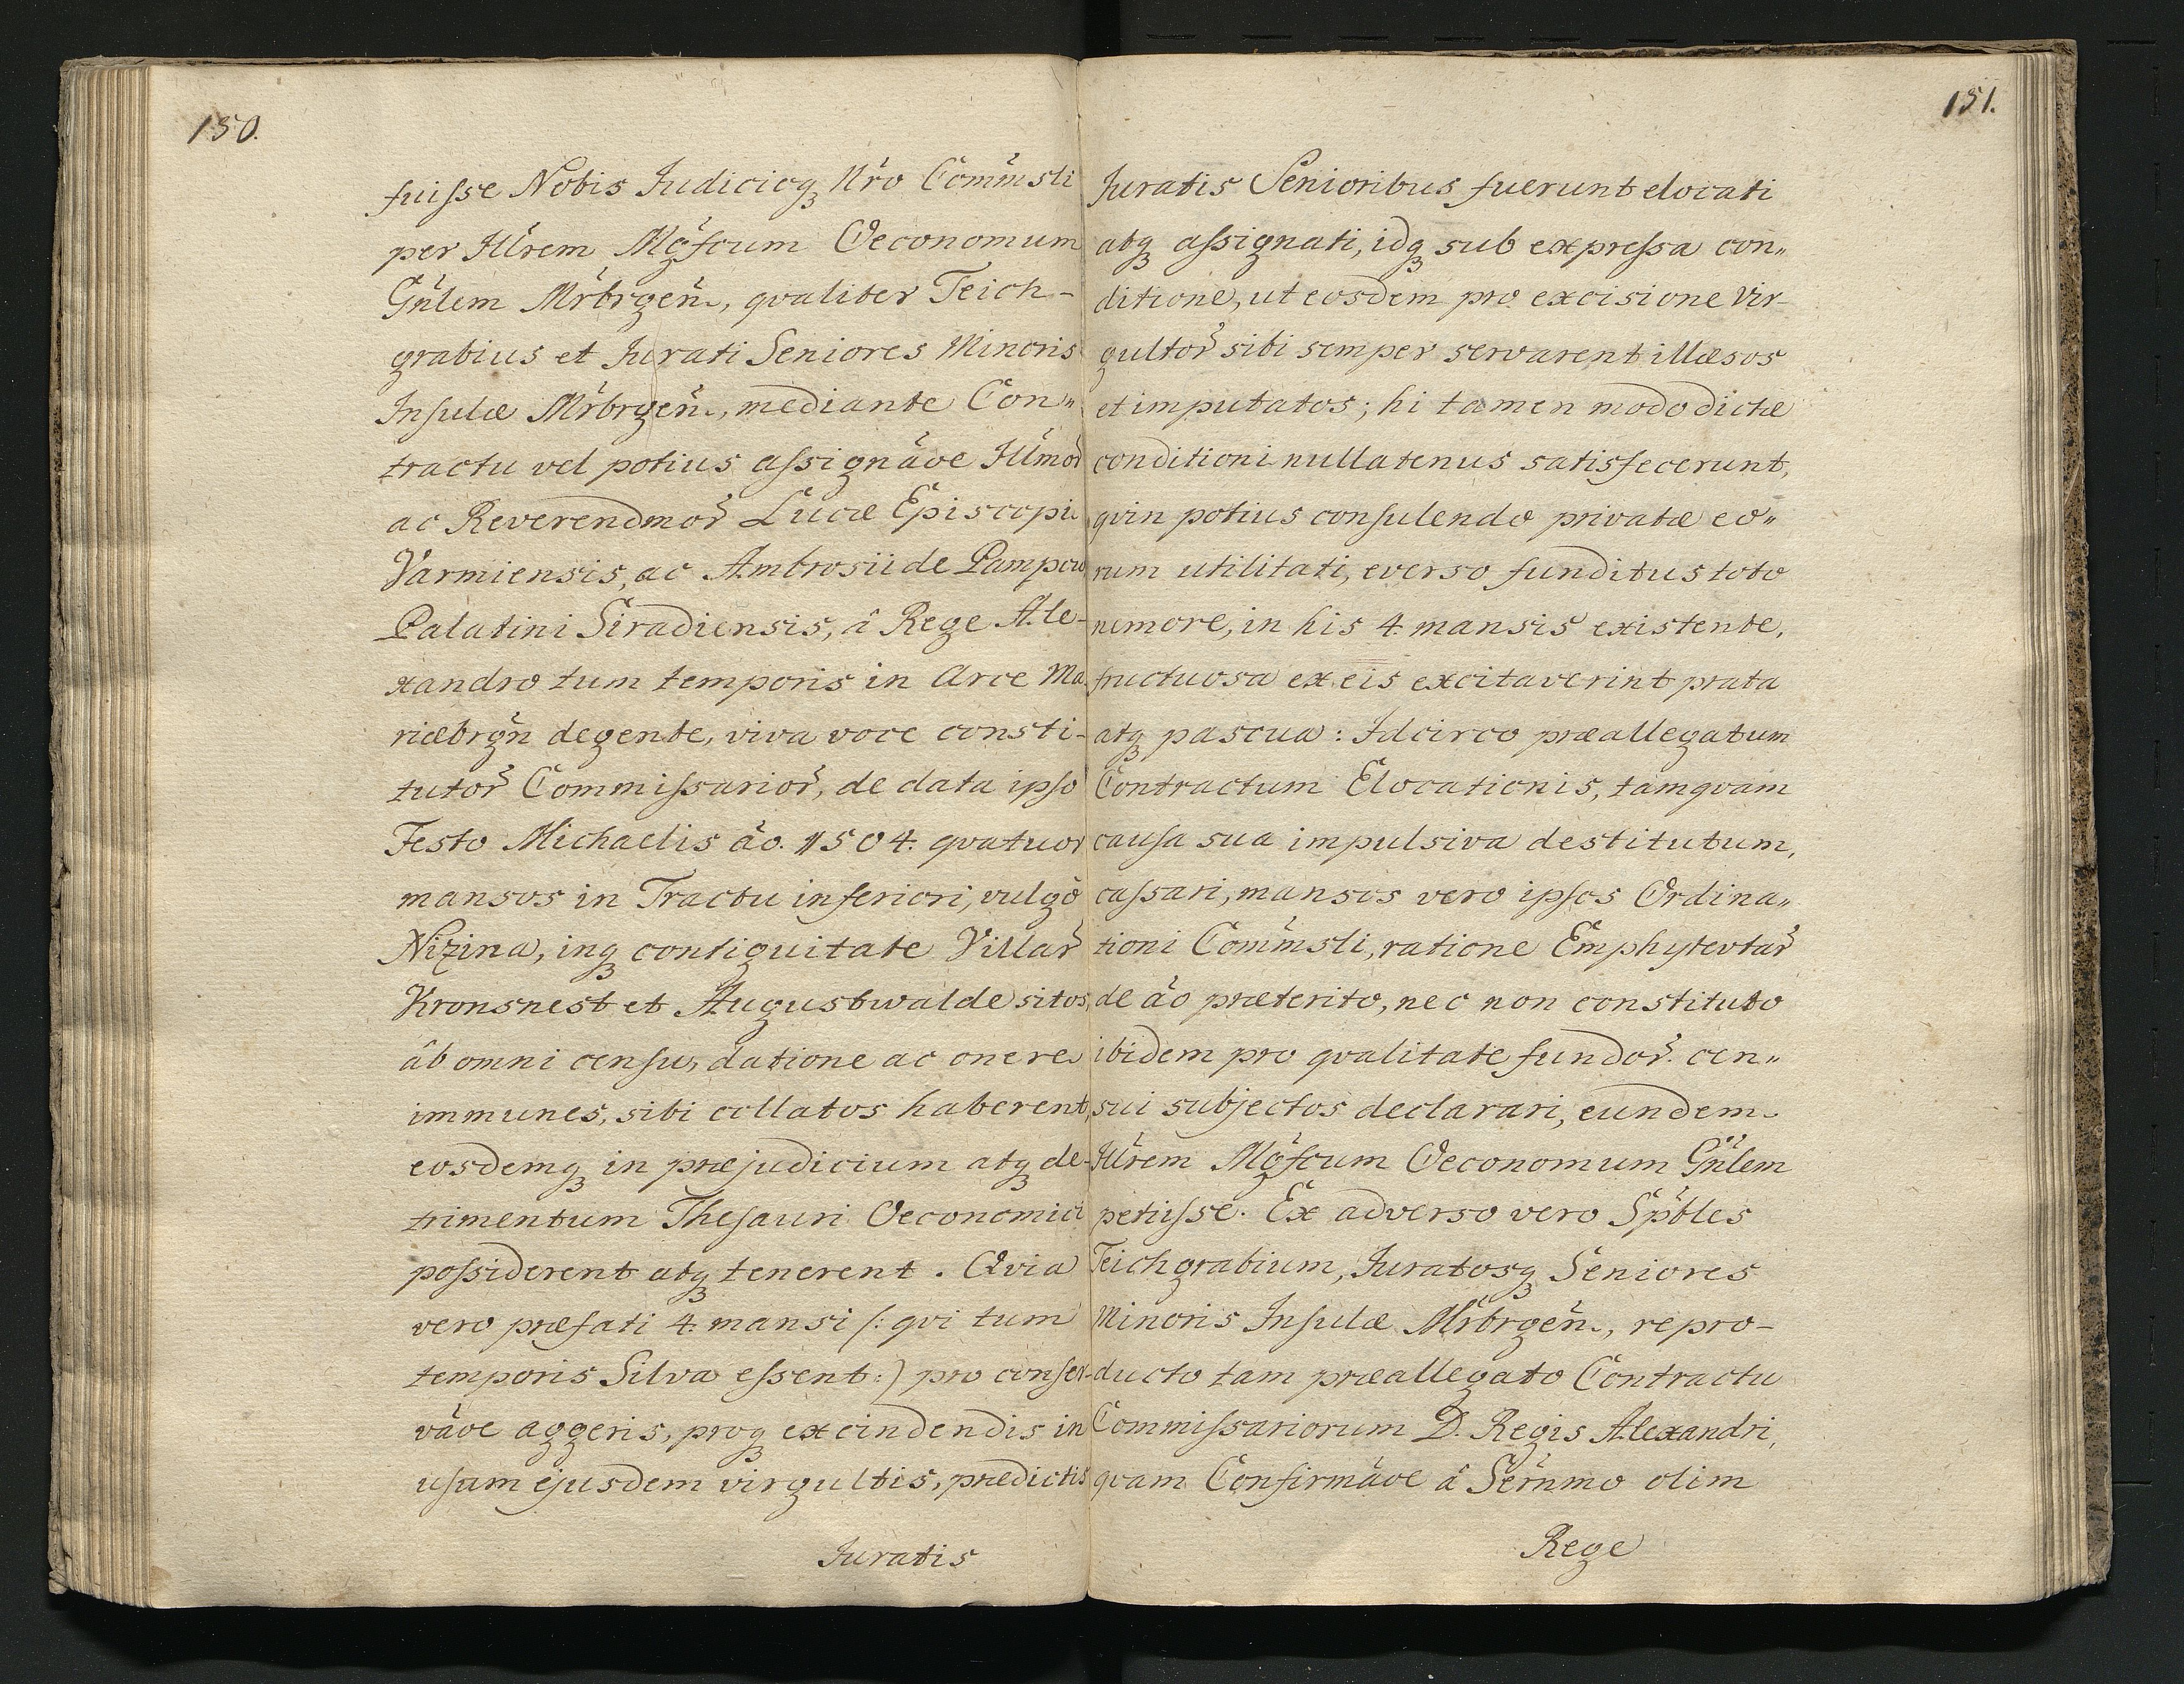 150.
fuisse Nobis Judicioq₃ Nr̃o Com̃msli
per Illr̃em Mg̃ficum Oeconomum
Gñlem Mr̃brgeñ., qvaliter Teich-
grabius et Jurati Seniores Minoris
Insulæ Mr̃brgeñ., mediante Con„
tractu vel potius assignãoe Illm̃or̃
ac Reverendmor̃ Lucæ Episcopi
Varmiensis, ac Ambrosii de Pampow
Palatini Siradiensis, â Rege Ale-
xandro tum temporis in Arce Ma
riæbrgn̄ degente, viva voce consti-
tutor̃ Commissarior̃, de data ipso
Festo Michaelis ão. 1504. qvatuor
mansos in Tractu inferiori, vulgò
Nizina, inq₃ contiguitate Villar̃
Kronsnest et Augustwalde sitos,
âb omni censu, datione ac onere
immunes, sibi collatos haberent,
eosdemq₃ in præjudicium atq₃ de-
trimentum Thesauri Oeconomici
possiderent atq₃ tenerent. Qvia
vero præfati 4. mansi /: qvi tum
temporis Silva essent:) pro conser-
vãoe aggeris, proq₃ excindendis in
usum ejusdem virgultis, prædictis
Juratis
151.
Juratis Senioribus fuerunt elocati
atq₃ assignati, idq₃ sub expressa con„
ditione, ut eosdem pro excisione Vir-
gultor̃ sibi semper servarent illæsos
et imputatos; hi tamen modo dictæ
conditioni nullatenus satisfecerunt,
qvin potius consulendo privatæ eo„
rum utilitati, everso funditus toto
nemore, in his 4. mansis existente,
fructuosa ex eis excitaverint prata
atq₃ pascua: Idcirco præallegatum
Contractum Elocationis, tamqvam
causa sua impulsiva destitutum,
cassari, mansos vero ipsos Ordina„
tioni Com̃msli, ratione Emphytevtar̃
de ão præterito, nec non constituto
ibidem pro qvalitate fundor̃. cen„
sui subjectos declarari, eundem
Illr̃em Mg̃ficum Oeconomum Gñlem
petiisse. Ex adverso vero Sp̃bles
Teichgrabium, Juratosq₃ Seniores
Minoris Insulæ Mr̃brgeñ., repro-
ducto tam præallegato Contractu
Commissariorum D. Regis Alexandri,
qvam Confirmãoe â Ser̃nmo olim
Rege